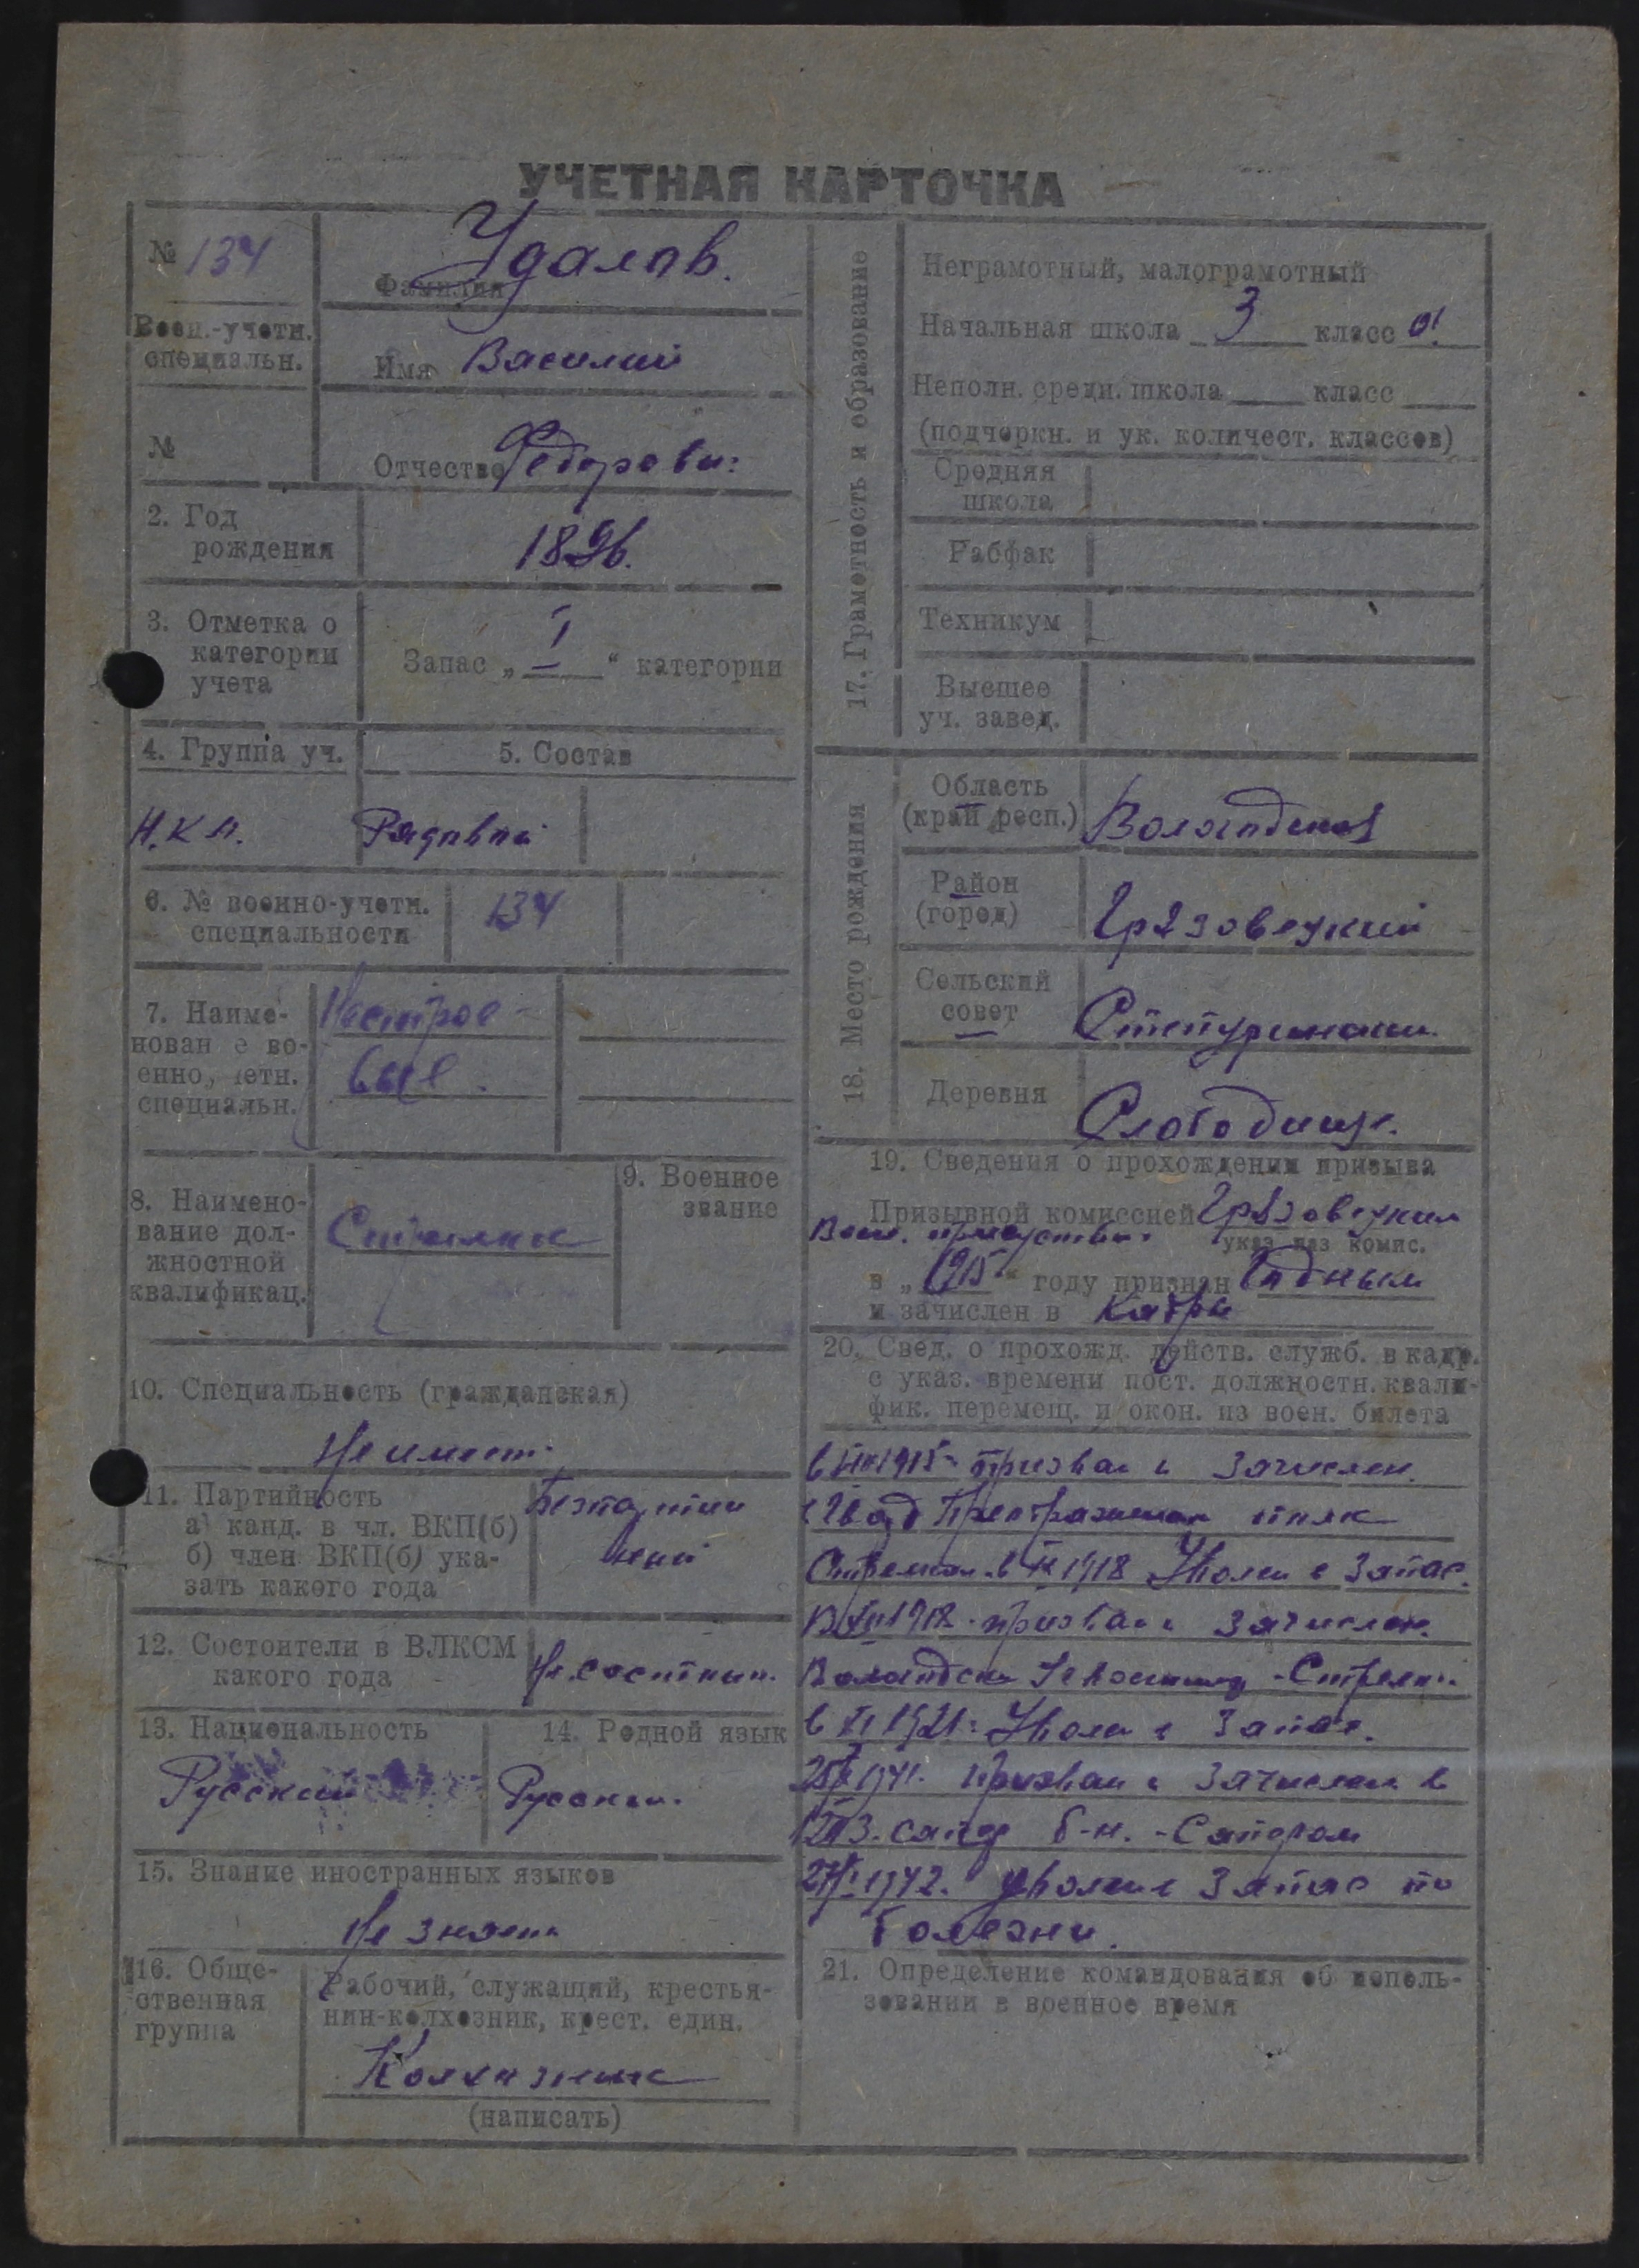 УЧЕТНАЯ КАРТОЧКА
№ 134
Воен.-учетн.
специальн.
№
Фамилия Удалов.
Имя Василий
Отчество Федорович
2. Год
рождения
1896.
3. Отметка о
категории
учета
Запас „I“ категории
4. Группа уч.
5. Состав
Н.К.А. Рядовой
6. № военно-учетн.
специальности
134
7. Наиме-
нование во-
енно-учетн.
специальн.
Нестрое-
вые.
8. Наимено-
вание дол-
жностной
квалификац.
Стрелок
9. Военное
звание
10. Специальность (гражданская)
Не имеет.
11. Партийность
а) канд. в чл. ВКП(б)
б) член ВКП(б) ука-
зать какого года
Безпартий
ный
12. Состоители в ВЛКСМ
какого года
Не состоял.
13. Национальность
Русский
14. Родной язык
Русский.
15. Знание иностранных языков
Не знает
16. Обще-
ственная
группа
Рабочий, служащий, крестья-
нин-колхозник, крест. един.
Колхозник
(написать)
17. Грамотность и образование
Неграмотный, малограмотный
Начальная школа 3 класс а!
Неполн. средн. школа класс
(подчеркн. и ук. количест. классов)
Средняя
школа
Рабфак
Техникум
Высшее
уч. завед.
18. Место рождения
Область
(край респ.)
Вологодская
Район
(город)
Грязовецкий
Сельский
совет
Степуринский
Деревня
Слободище.
19. Сведения о прохождении призыва
Призывной комиссией Грязовецким
Воин. присутствие.
указ. наз. комис.
в „1915“ году признан Годным
и зачислен в Кадры
20. Свед. о прохожд. действ. служб. в кадр.
с указ. времени пост. должностн. квали-
фик. перемещ. и окон. из воен. билета
в 1915 призван и зачислен.
Преображенский полк
Стрелком в 1918 Уволен в Запас.
В 1918 призван и зачислен.
Вологодский - Стрелк.
в 1921 Уволен в Запас.
1941. Призван и зачислен в
сапер б-н. - Сапером
1942. Уволен в Запас по
болезни.
21. Определение командования об исполь-
зовании в военное время